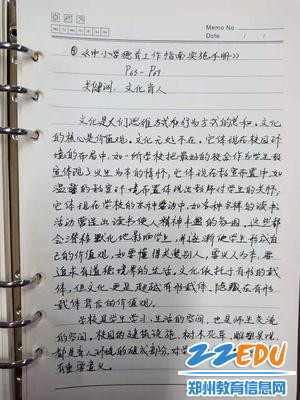 Memo No.
Date / /
①《中小学德育工作指南实施手册》
P65-P69
关键词:文化育人
文化是人们思维方式和行为方式的总和,文化
的核心是价值观。文化无处不在,它体现在校园环
境的布局中,如一所学校把最好的校舍作为学生教
室体现了以生为本的情怀,它体现在教室布置中,如
温馨的教室环境布置体现出教师对学生的关怀,
它体现在学校的各种活动中,如各种各样的读书
活动营造出读书使人精神丰盈的氛围,这些都
会潜移默化地影响学生,并逐渐使学生形成自
己的价值观,如要懂得关爱别人,要以人为本,要
追求有道德境界的生活。文化依托于有形的载
体,但文化更是超越有形载体、隐藏在有形
载体背后的价值观。
学校是学生学习、生活的空间,也是师生交流
的空间。校园的建筑设施、树木花草、雕塑景观
都是育人环境的组成部分,对学
有重要意义。
ZZEDU
郑州教育信息网